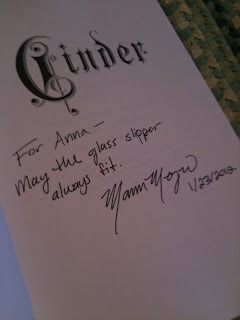 Cinder
For Anna –
May the glass slipper
always fit.
1/23/2012